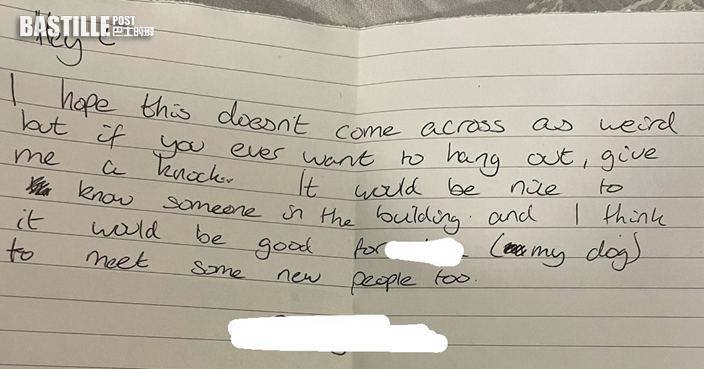 BASTILLE POST
巴士的報
Hey
I hope this doesn't come across as weird
but if you ever want to hang out, give
me a knock. It would be nice to
know someone in the building. and I think
it would be good for (my dog)
to meet some new people too.